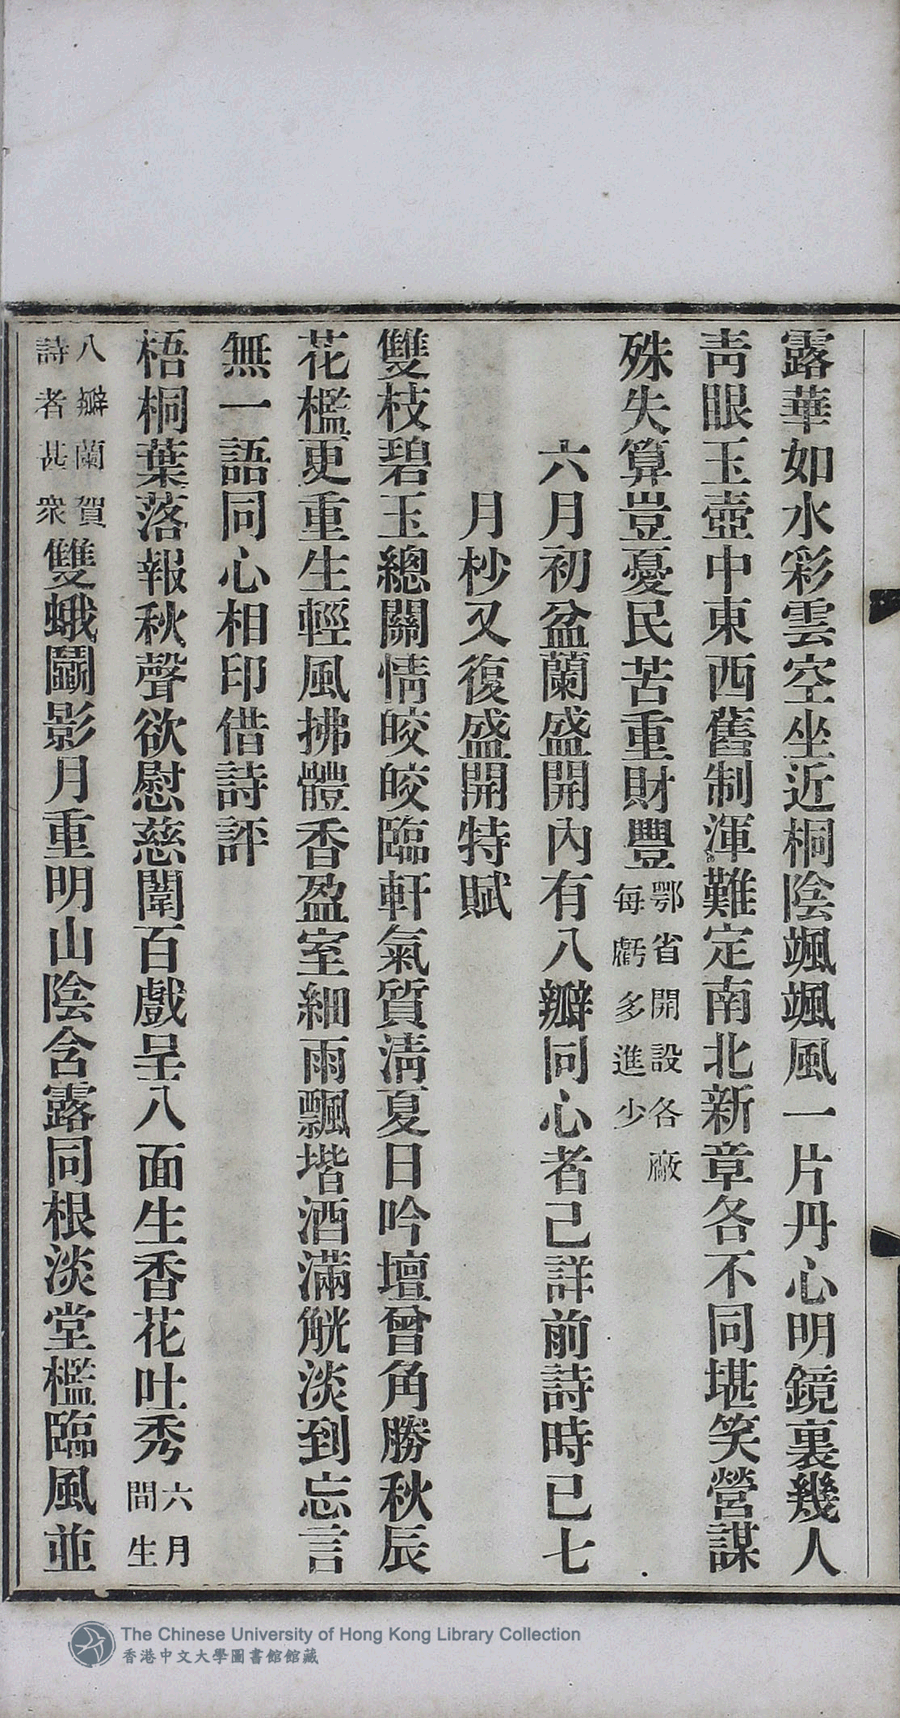 露華如水彩雲空坐近桐陰颯颯風一片丹心明鏡裏幾人
靑眼玉壺中東西舊制渾難定南北新章各不同堪笑營謀
殊失算豈憂民苦重財豐鄂省開設各廠每虧多進少
六月初盆蘭盛開內有八瓣同心者已詳前詩時已七
月杪又復盛開特賦
雙枝碧玉總關情皎皎臨軒氣質淸夏日吟壇曾角勝秋辰
花檻更重生輕風拂體香盈室細雨飄堦酒滿觥淡到忘言
無一語同心相印借詩評
梧桐葉落報秋聲欲慰慈闈百戲呈八面生香花吐秀六月間生
八瓣蘭賀詩者甚衆雙蛾鬬影月重明山陰含露同根淡堂檻臨風並
The Chinese University of Hong Kong Library Collection
香港中文大學圖書館館藏